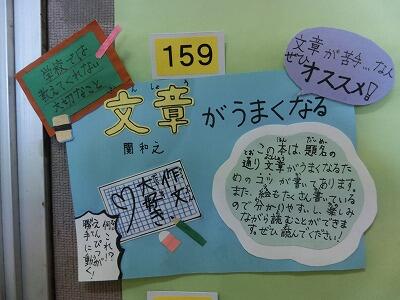 学校では
教えてくれない
大切なこと
159
文章が苦手…な人
ぜひ
オススメ!
文章がうまくなる
関和之
この本は、題名の
通り文章がうまくなるた
めのコツが書いてあります。
また、絵もたくさん書いている
ので分かりやすいし、楽しみ
ながら読むことができま
す。ぜひ読んでください!
作文
大好き
何これ!?
えんぴつが
勝手に動く!